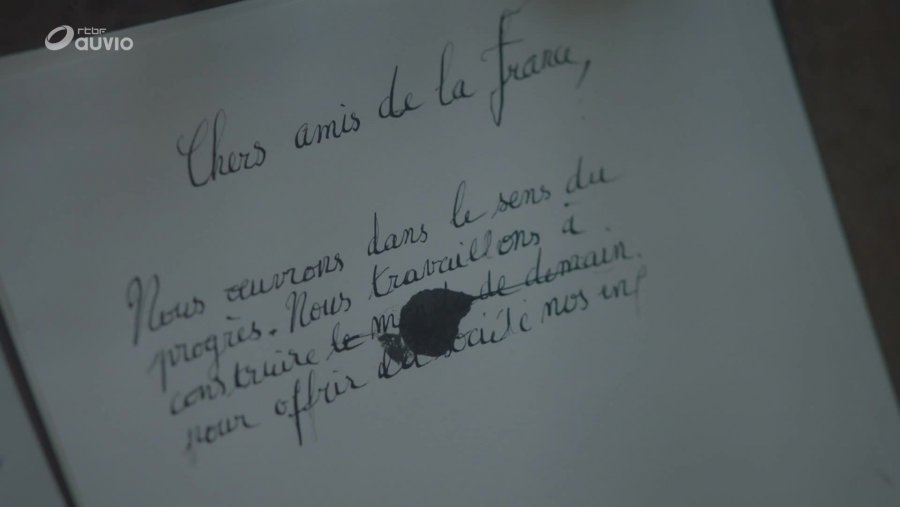 rtbf
auvio
Chers amis de la france,
Nous œuvrons dans le sens du
progrès. Nous travaillons à
construire le de demain.
pour offrir société nos